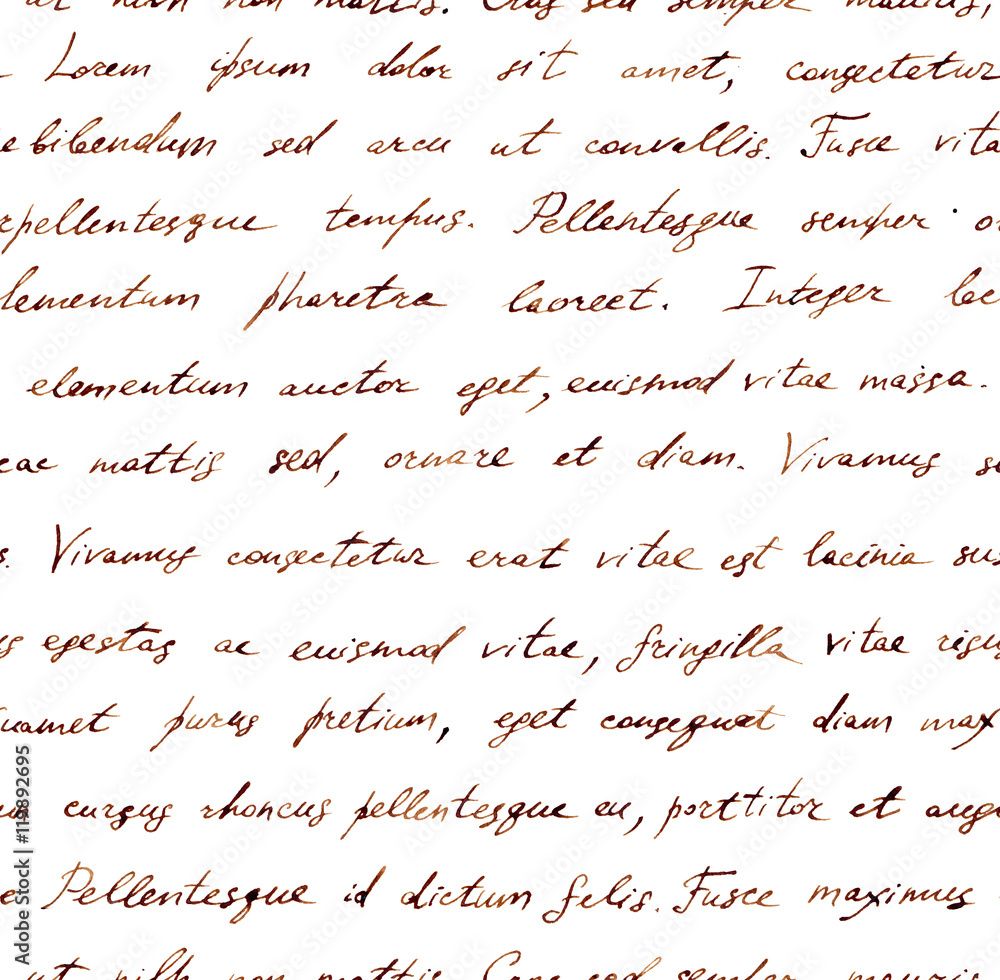 non mattis. Cras sed semper mauris,
Lorem ipsum dolor sit amet, consectetur
bibendum sed arcu ut convallis. Fusce vita
rpellentesque tempus. Pellentesque semper or
lementum pharetra laoreet. Integer lac
elementum auctor eget, euismod vitae massa.
cac mattis sed, ornare et diam. Vivamus se
s. Vivamus consectetur erat vitae est lacinia sus
us egestas ac euismod vitae, fringilla vitae risus
uamet purus pretium, eget consequat diam max
cursus rhoncus pellentesque eu, porttitor et augu
e Pellentesque id dictum felis. Fusce maximus
ut nibh non mattis. Cras sed semper mauris
Adobe Stock | #119892695